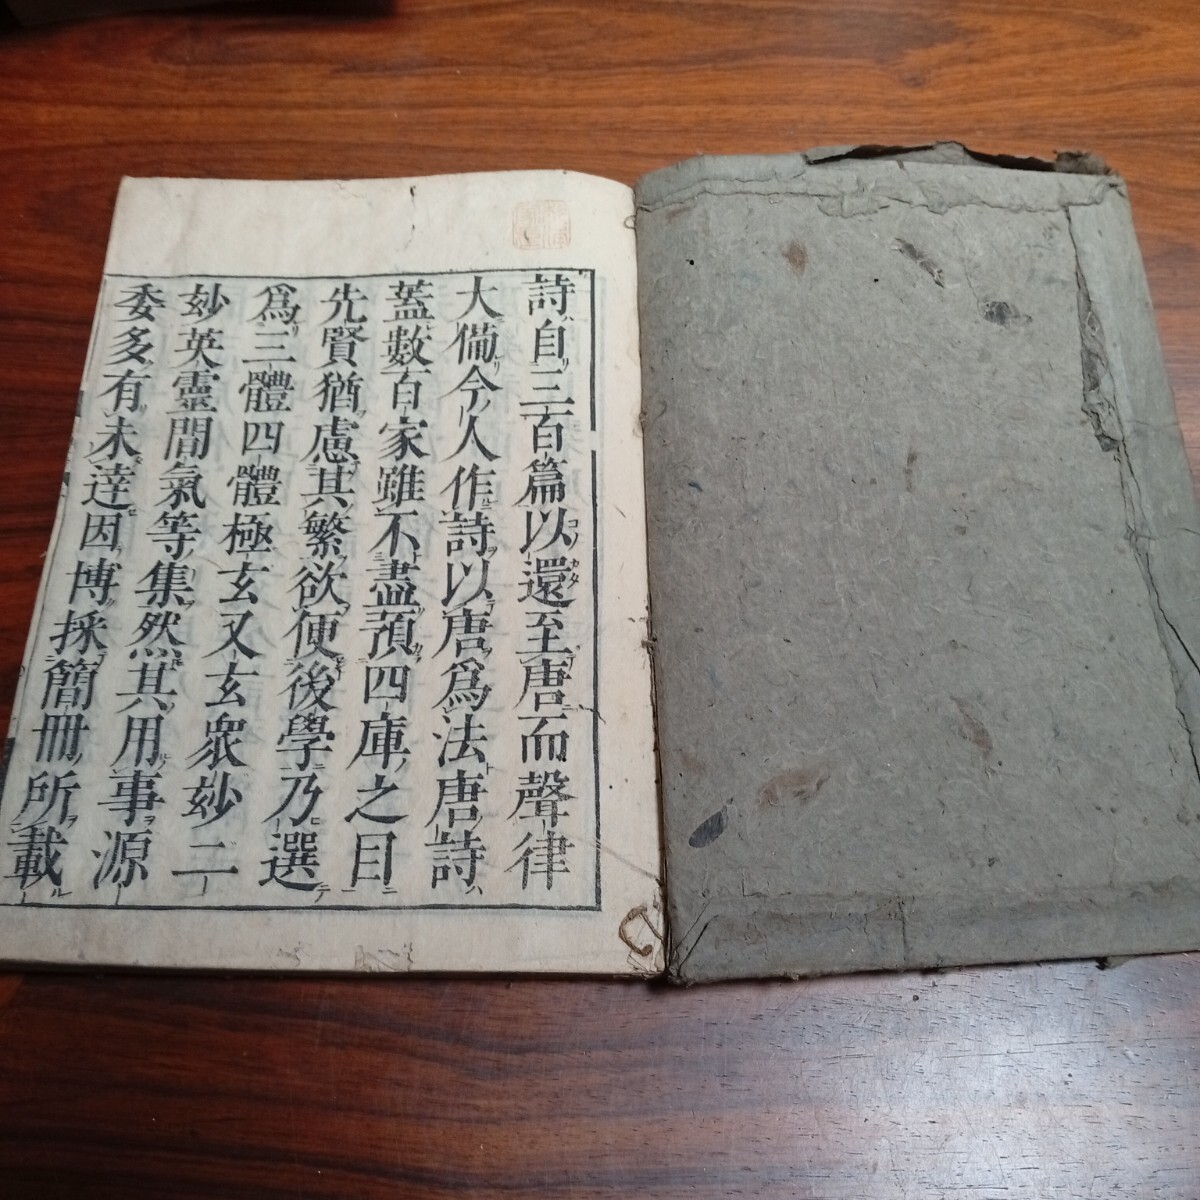 詩自三百篇以還至唐而聲律
大備今人作詩以唐爲法唐詩
蓋數百家雖不盡預四庫之目
先賢猶慮其繁欲便後學乃選
爲三體四體極玄又玄衆妙二
妙英靈間氣等集然其用事源
委多有未達因博採簡冊所載